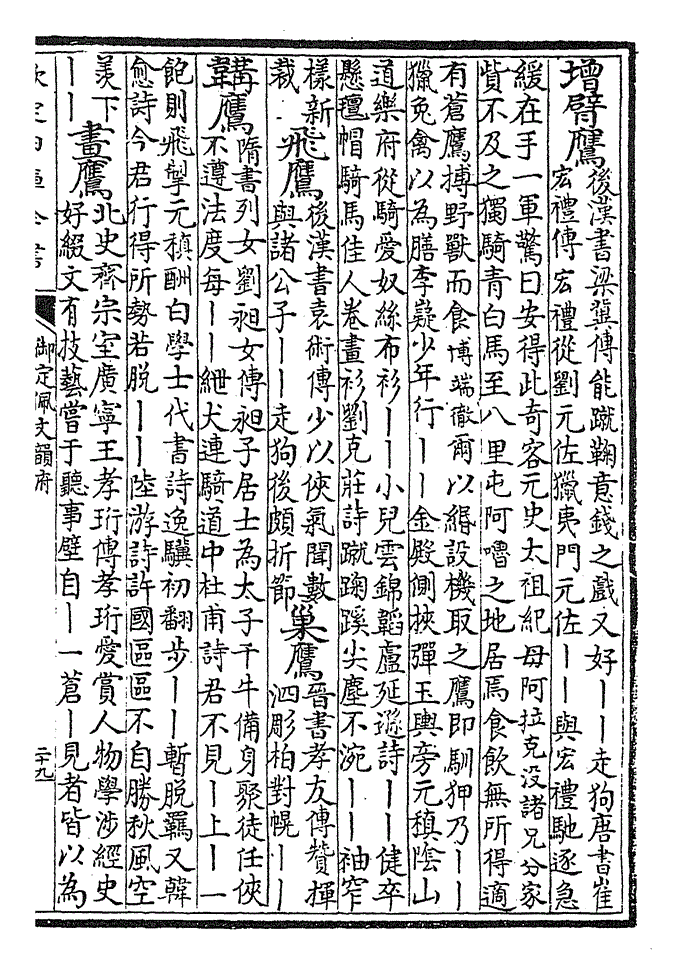 增臂鷹後漢書梁冀傳能蹴鞠意錢之戲又好丨丨走狗唐書崔
宏禮傳宏禮從劉元佐獵夷門元佐丨丨與宏禮馳逐急
緩在手一軍驚曰安得此奇客元史太祖紀母阿拉克沒諸兄分家
貲不及之獨騎青白馬至八里屯阿嚕之地居焉食飲無所得適
有蒼鷹搏野獸而食博端徹爾以緡設機取之鷹即馴狎乃丨丨
獵兔禽以為膳李嶷少年行丨丨金殿側挾彈玉輿旁元稹陰山
道樂府從騎愛奴絲布衫丨丨小兒雲錦韜盧延遜詩丨丨健卒
懸氊帽騎馬佳人卷畫衫劉克莊詩蹴踘蹊尖塵不涴丨丨袖窄
樣新
裁
飛鷹後漢書袁術傳少以俠氣聞數
與諸公子丨丨走狗後頗折節
巢鷹晉書孝友傳贊揮
泗彫柏對幌丨丨
韝鷹隋書列女劉昶女傳昶子居士為太子千牛備身聚徒任俠
不遵法度每丨丨紲犬連騎道中杜甫詩君不見丨上丨一
飽則飛掣元稹酬白學士代書詩逸驥初翻步丨丨暫脫羈又韓
愈詩今君行得所勢若脫丨丨陸游詩許國區區不自勝秋風空
羨下
丨丨
畫鷹北史齊宗室廣寧王孝珩傳孝珩愛賞人物學涉經史
好綴文有技藝嘗于聽事壁自丨一蒼丨見者皆以為
欽定四庫全書
御定佩文韻府
二十九